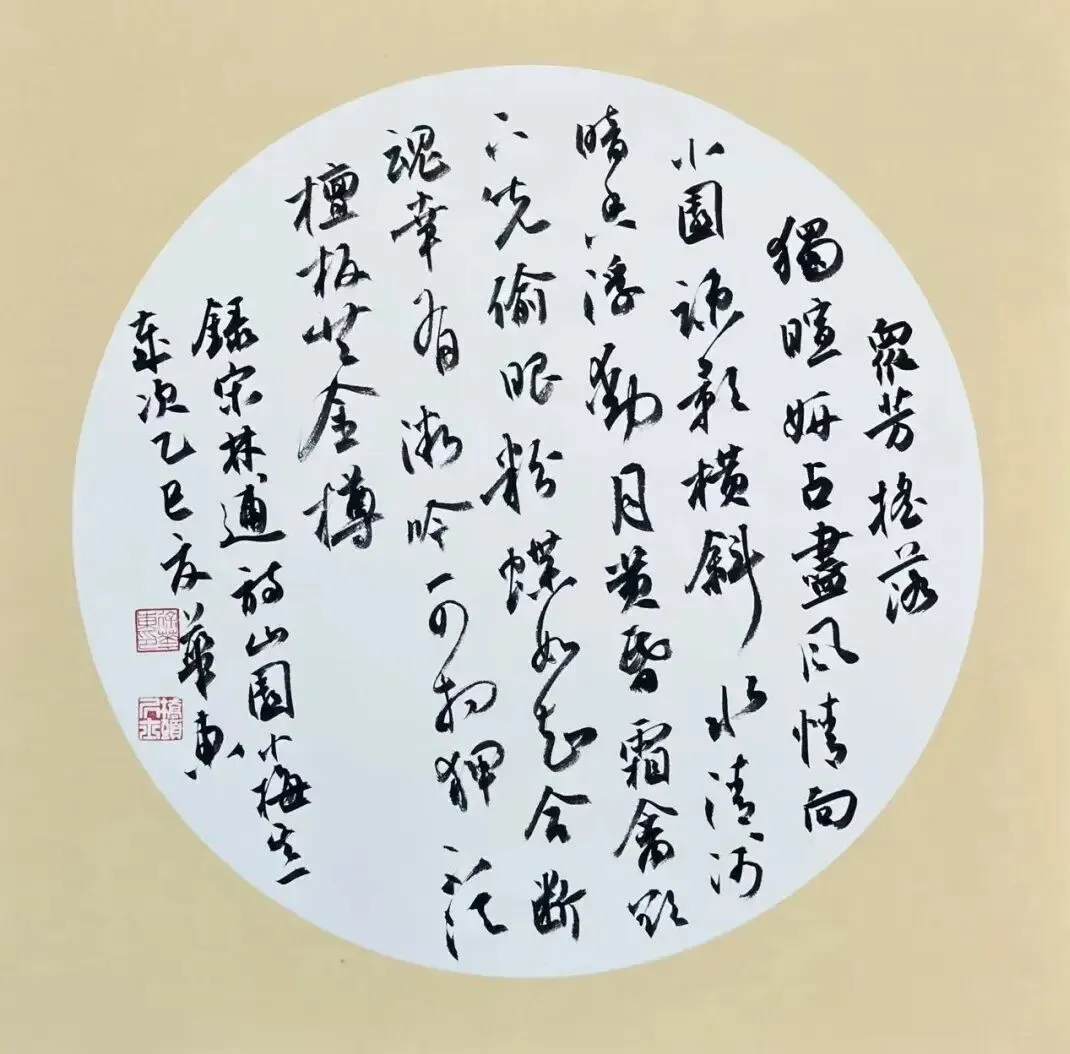 眾芳搖落
獨暄妍占盡風情向
小園疏影橫斜水清淺
暗香浮動月黃昏霜禽欲
下先偷眼粉蝶如知合斷
魂幸有微吟可相狎不須
檀板共金樽
錄宋林逋詩山園小梅其一
歲次乙巳夏華東
徐華東印